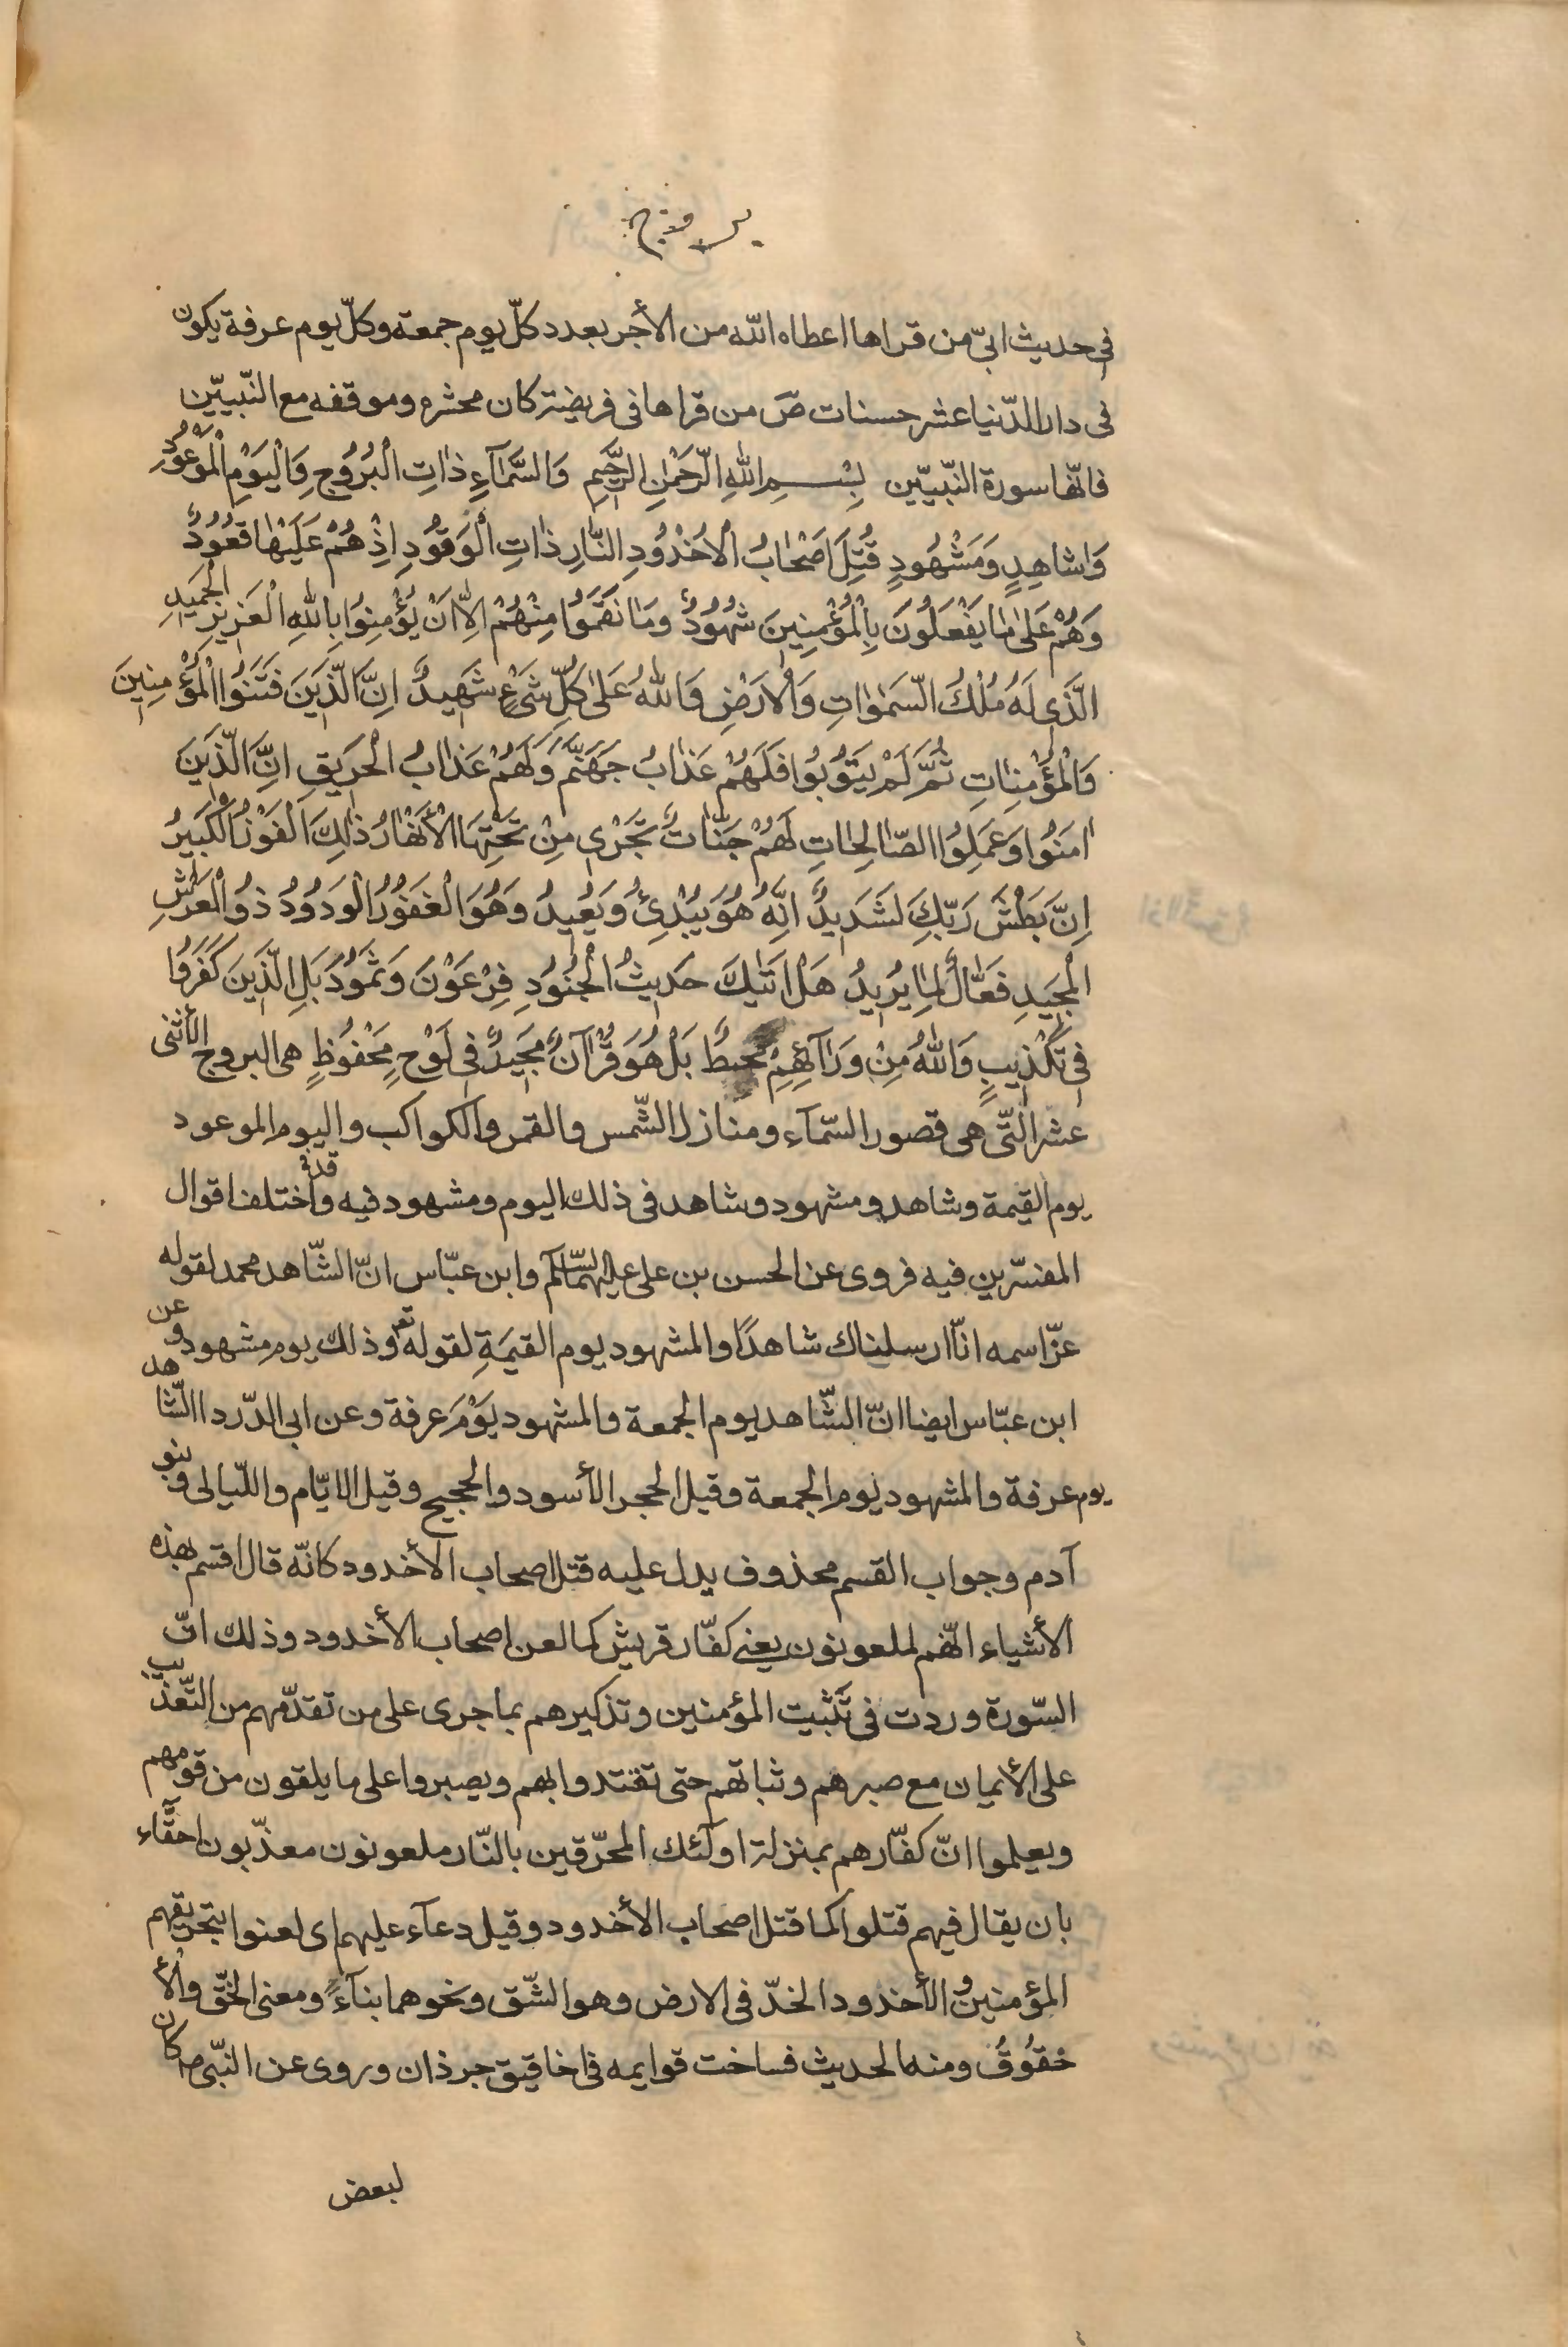 بروج
فى حديث ابىّ من قراها اعطاه اللّه من الأجر بعدد كلّ يوم جمعة وكلّ يوم عرفة يكون
فى دار الدّنيا عشر حسنات صَ من قراها فى فريضة كان محشره وموقفه مع النّبييّن
فانّها سورة النّبييّن بِسْمِ اللهِ الرَّحْمٰنِ الرَّحِيمِ وَالسَّمَآءِ ذٰاتِ الْبُرُوجِ وَالْيَوْمِ الْمَوْعُودِ
وَشاهِدٍ وَمَشْهُودٍ قُتِلَ اَصْحٰابُ الْاُخْدُودِ النّٰارِ ذٰاتِ الْوَقُودِ اِذْ هُمْ عَلَيْهٰا قُعُودٌ
وَهُمْ عَلىٰ مٰا يَفْعَلُونَ بِالْمُؤْمِنِينَ شُهُودٌ وَمٰا نَقَمُوا مِنْهُمْ اِلّٰا اَنْ يُؤْمِنُوا بِاللهِ الْعَزِيزِ الْحَمِيدِ
الَّذِى لَهُ مُلْكُ السَّمٰوٰاتِ وَالْاَرْضِ وَاللهُ عَلىٰ كُلِّ شَىْءٍ شَهِيدٌ اِنَّ الَّذِينَ فَتَنُوا الْمُؤْمِنِينَ
وَالْمُؤْمِنٰاتِ ثُمَّ لَمْ يَتُوبُوا فَلَهُمْ عَذٰابُ جَهَنَّمَ وَلَهُمْ عَذٰابُ الْحَرِيقِ اِنَّ الَّذِينَ
اٰمَنُوا وَعَمِلُوا الصّٰالِحٰاتِ لَهُمْ جَنّٰاتٌ تَجْرِى مِنْ تَحْتِهَا الْأَنْهٰارُ ذٰلِكَ الْفَوْزُ الْكَبِيرُ
اِنَّ بَطْشَ رَبِّكَ لَشَدِيدٌ اِنَّهُ هُوَ يُبْدِئُ وَيُعِيدُ وَهُوَ الْغَفُورُ الْوَدُودُ ذُو الْعَرْشِ
الْمَجِيدِ فَعّٰالٌ لِمٰا يُرِيدُ هَلْ اَتٰيكَ حَدِيثُ الْجُنُودِ فِرْعَوْنَ وَثَمُودَ بَلِ الَّذِينَ كَفَرُوا
فِى تَكْذِيبٍ وَاللهُ مِنْ وَرٰآئِهِمْ مُحِيطٌ بَلْ هُوَ قُرْاٰنٌ مَجِيدٌ فِى لَوْحٍ مَحْفُوظٍ هى البروج الأثنى
عشر الّتى هى قصور السّمآء ومنازل الشّمس والقمر والكواكب واليوم الموعود
يوم القيمة وشاهد ومشهود وشاهد فى ذلك اليوم ومشهود فيه وقد اختلف اقوال
المفسّرين فيه فروى عن الحسن بن على عليهما السّلام وابن عبّاس انّ الشّاهد محمد لقوله
عزّ اسمه انّا ارسلناك شاهدًا والمشهود يوم القيمَةِ لقوله تع وذلك يوم مشهود وعن
ابن عبّاس ايضا انّ الشّاهد يوم الجمعة والمشهود يَوْمَ عرفة وعن ابى الدّردا الشّاهد
يوم عرفة والمشهود يوم الجمعة وقيل الحجر الأسود والحجيج وقيل الايّام واللّيالى وبنو
آدم وجواب القسم محذوف يدل عليه قتل اصحاب الأخدود كانّه قال اقسم بهذه
الأشياء انّهم لملعونون يعنى كفّار قريش كما لعن اصحاب الأخدود وذلك انّ
السّورة وردت فى تَثبيت المؤمنين وتذكيرهم بما جرى على من تقدّمهم من التّعذيب
على الأيمان مع صبرهم وثباتهم حتى تقتدوا بهم ويصبروا على ما يلقون من قومهم
ويعلموا انّ كفّارهم بمنزلة اولٓئك المحرّقين بالنّار ملعونون معذّبون احقّآء
بان يقال فيهم قتلوا كما قتل اصحاب الأخدود وقيل دعآء عليهم اى لعنوا بتحريقهم
المؤمنين و الأخدود الخدّ فى الارض وهو الشّق ونحوهما بنآءً ومعنى الخقّ والأ
خقُوقُ ومنه الحديث فساخت قوايمه فى اخاقيق جرذان وروى عن النّبى ص كان
لبعض